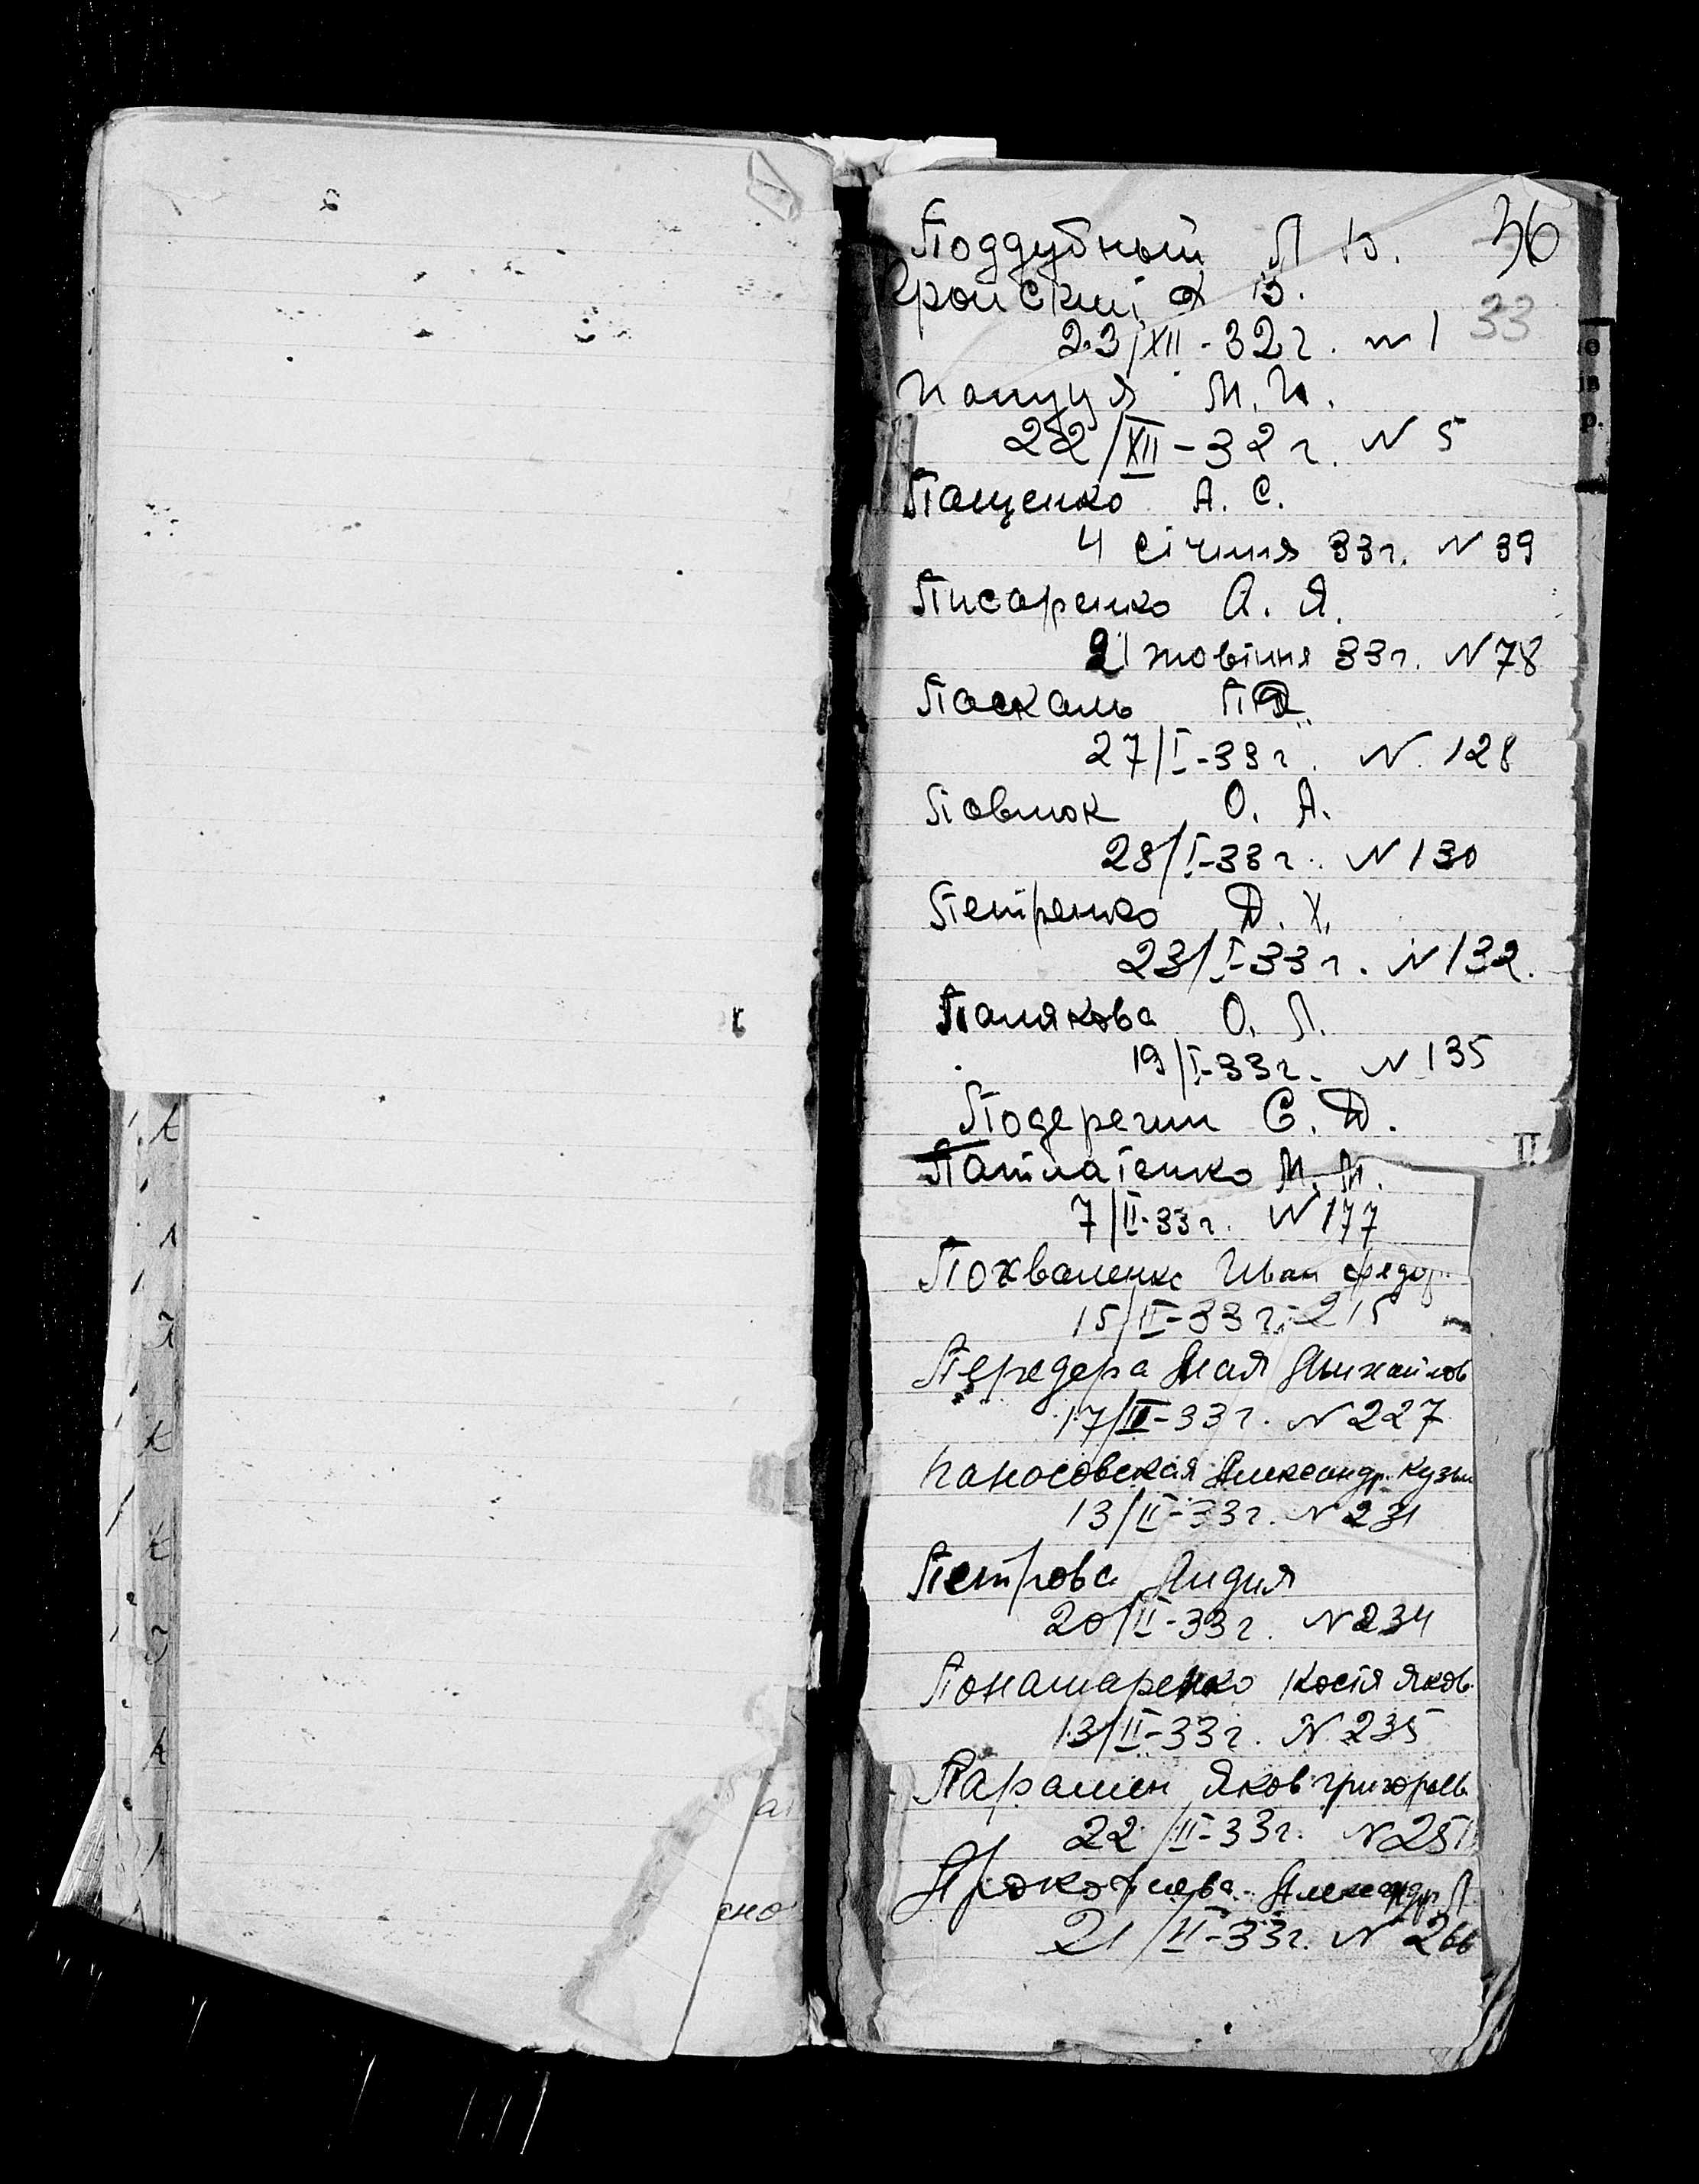 Поддубный Л В. 36
Кройский Я В.
23/XII-32г. № 1 33
Папуця М. И.
22/XII-32г. N 5
Пащенко А. С.
4 січння 33г. N 39
Писаренко А. Я.
21 жовтня 33г. N 78
Паскаль П Д.
27/I-33г. N. 128
Павлюк О. А.
28/I-33г. N 130
Петренко Д. Х.
23/I-33г. N 132.
Палякова О. Л.
19/I-33г. N 135
Подерегин С. Д.
Патлатенко М. М.
7/II-33г. N 177
Похваленко Иван Федор.
15/II-33г.-215
Передера Мая Михайлов
17/II-33г. N 227
Паносовская Александр. Кузьм
13/II-33г. N 231
Петрова Лидия
20/II-33г. N 234
Понамаренко Костя Яков.
13/II-33г. N 235
Парамен Яков Григорьев
22/II-33г. N 251
Прокопева Александр. Л
21/II-33г. N 266